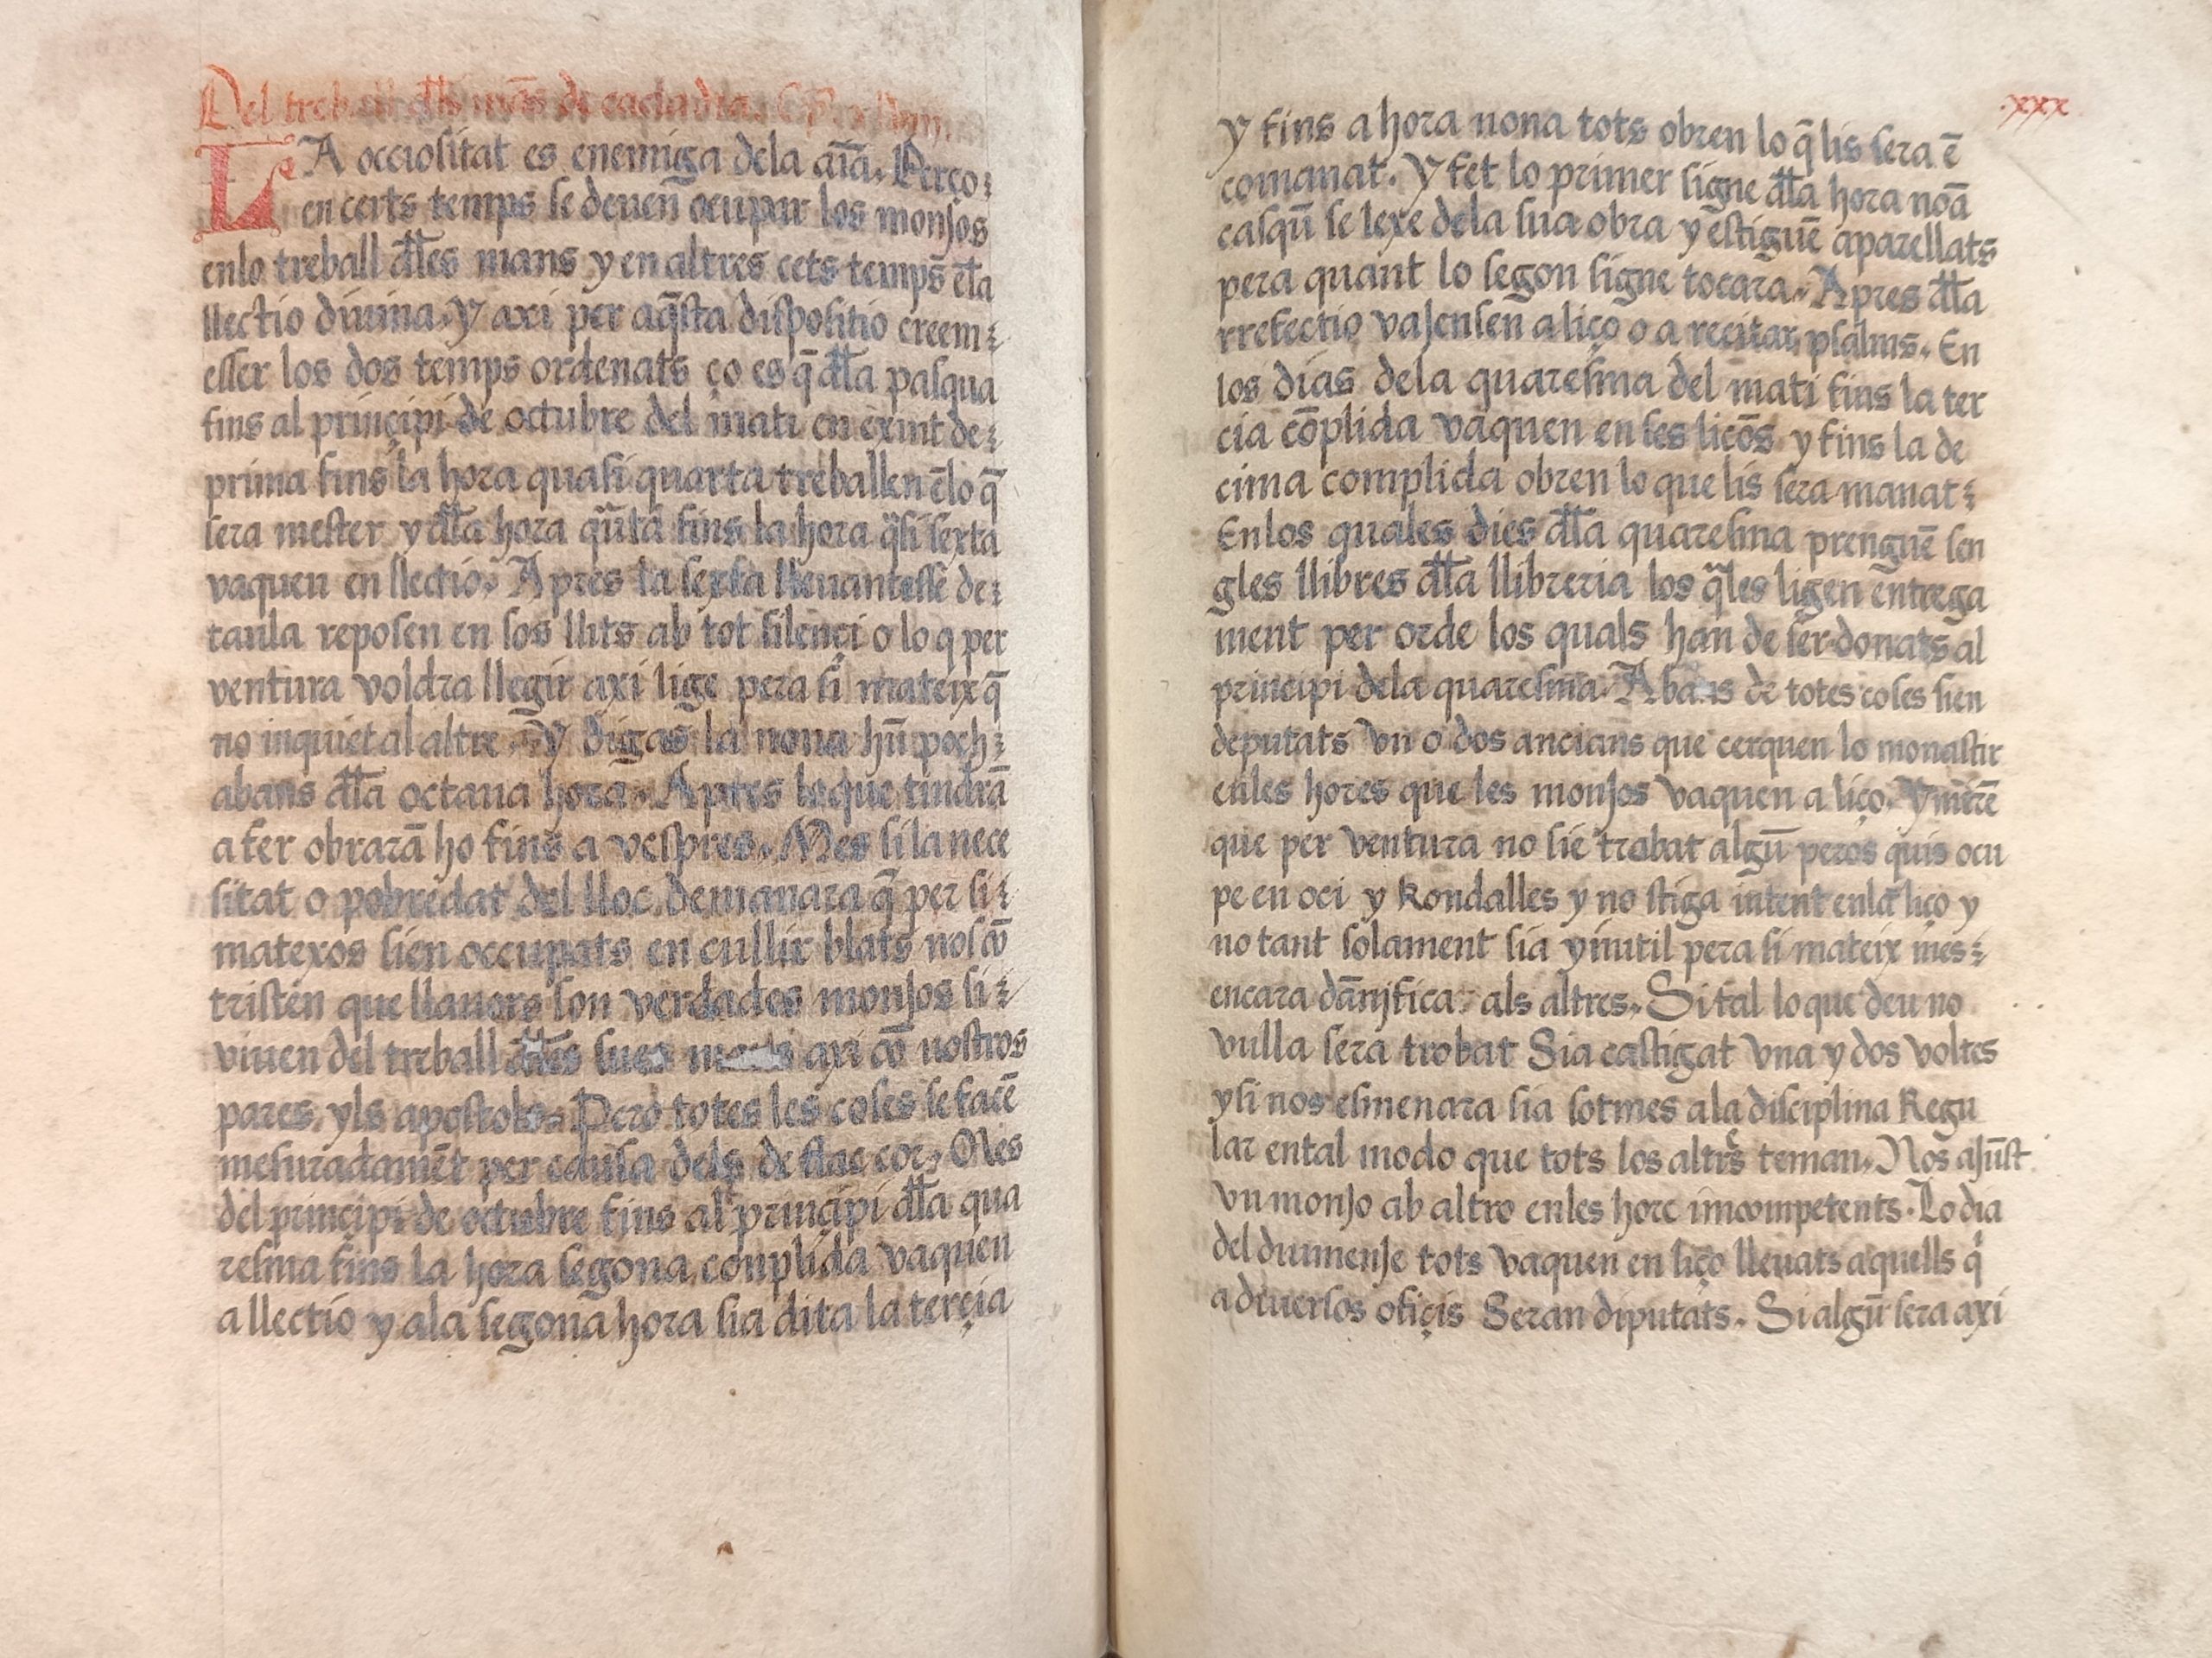 Del treball dłls mās de cada dia. Cap. xlviij.
LA occiositat es enemiga dela aīa. Perço:
en certs temps se deuen̄ ocupar los monjos
enlo treball dłles mans y en altres cets temps̄ ēla
llectio diuina. Y axi per aq̄sta dispositio creem:
esser los dos temps ordenats ço es q̄ dłla pasqua
fins al prinçipi de octubre del mati en exint de:
prima fins la hora quasi quarta treballen ēlo q̄
sera mester y dłla hora qūta fins la hora q̄si sexta
vaquen en llectio. Apres la sexta lleuantesse de:
taula reposen en los llits ab tot silençi o lo q per
ventura voldra llegir axi lige pera si mateix q̄
no inquiet al altre. Y digas la nona hū poch:
abans dłla octaua hora. Apres loque tindrā
a fer obrarā ho fins a vespres. Mes si la nece
sitat o pobredat del lloc demanara q̄ per si:
matexos sien occupats en cullir blats nos cō
tristen que llauors son verdades monjos si:
viuen del treball dłles sues axi cō nostros
pares, yls apostols. Pero totes les coses se facē
mesuradamēt per causa dels de flac cor, Mes
del principi de octubre fins al prinçipi dłla qua
resma fins la hora segona conplida vaquen
a llectio y ala segona hora sia dita la terçia
.xxx.
y fins a hora nona tots obren lo q̄ lis sera ē
comanat. Y fet lo primer signe dłla hora nōa
casqū se lexe dela sua obra y estiguē aparellats
pera quant lo segon signe tocara. Apres dłla
rrefectio vajensen a liço o a recitar psalms. En
los dias dela quaresma del mati fins la ter
cia cōplida vaquen en ses licōs y fins la de
cima complida obren lo que lis sera manat:
Enlos quales dies dłla quaresma prenguē sen
gles llibres dłla llibreria los q̄les ligen entrega
ment per orde los quals han de ser donats al
principi dela quaresma. Abans de totes coses sien
deputats vn o dos ancians que cerquen lo monastir
enles hores que les monjos vaquen a liço. Y mirē
que per ventura no sie trobat algū peros quis ocu
pe en oci y Rondalles y no stiga intent enla liço y
no tant solament sia ynutil pera si mateix mes:
encara dānifica als altres. Si tal lo que deu no
vulla sera trobat Sia castigat vna y dos voltes
y si nos esmenara sia sotmes ala disciplina Regu
lar ental modo que tots los altrs teman. Nos ajūst
vn monjo ab altro enles hore incompetents. Lo dia
del diumenje tots vaquen en liço lleuats aquells q̄
a diuersos ofiçis Seran diputats. Si algū sera axi